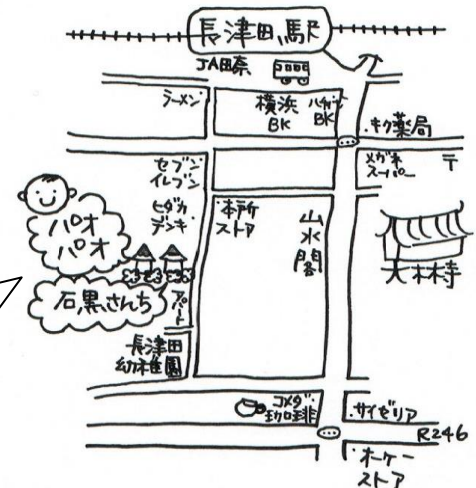 長津田駅
JA田奈
ラーメン
横浜
BK
ハマギン
BK
キク薬局
セブン
イレブン
メガネ
スーパー
〒
ヒダカ
デンキ
本所
ストア
山水閣
大林寺
パオ
パオ
石黒さんち
アパート
長津田
幼稚園
コメダ
珈琲
サイゼリア
R246
オーケー
ストア